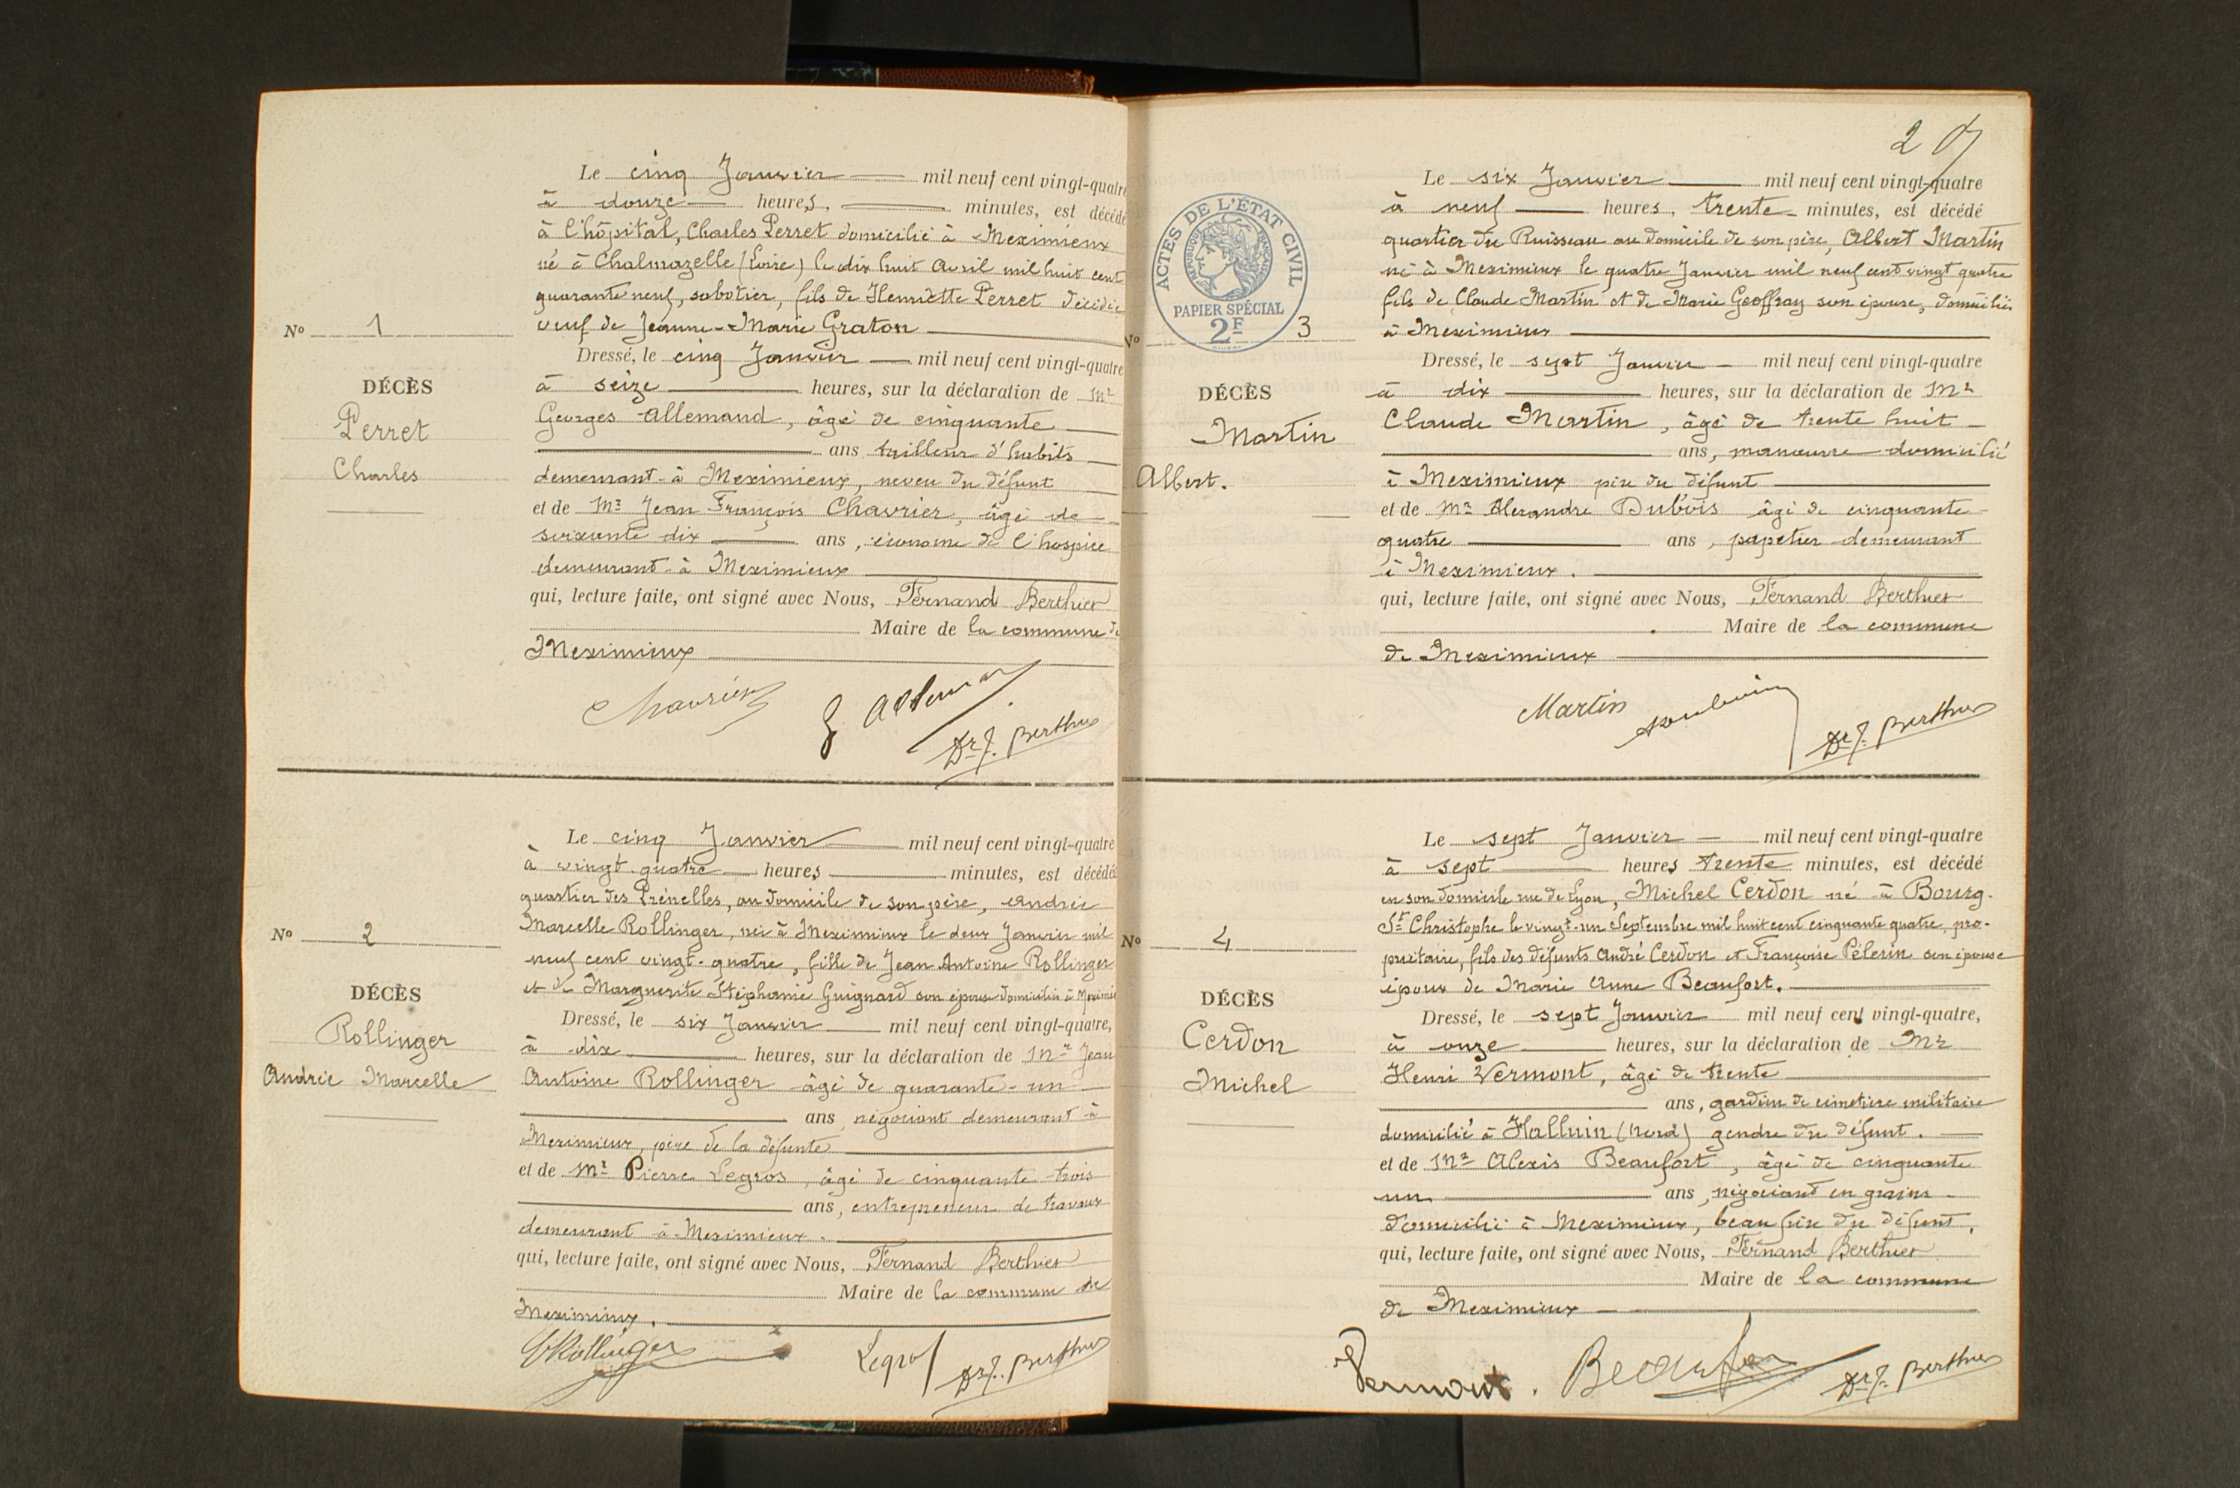 Le cinq Janvier mil neuf cent vingt-quatre
à douze heures, minutes, est décédé
à l'hôpital, Charles Perret domicilié à Meximieux
né à Chalmazelle (Loire) le dix huit Avril mil huit cent
quarante neuf, sabotier, fils de Henriette Perret décédée
veuf de Jeanne-Marie Graton
No 1
DÉCÈS
Perret
Charles
Dressé, le cinq Janvier mil neuf cent vingt-quatre
à seize heures, sur la déclaration de Mr
Georges Allemand, âgé de cinquante
ans tailleur d'habits
demeurant à Meximieux, neveu du défunt
et de Mr Jean François Chavrier, âgé de
soixante dix ans, économe de l'hospice
demeurant à Meximieux
qui, lecture faite, ont signé avec Nous, Fernand Berthier
Maire de la commune de
Meximieux
Chavrier
Dr F. Berthier
Le cinq Janvier mil neuf cent vingt-quatre
à vingt quatre heures minutes, est décédée
quartier des Prénelles, au domicile de son père, Andrée
Marcelle Rollinger, née à Meximieux le deux Janvier mil
neuf cent vingt-quatre, fille de Jean Antoine Rollinger
et de Marguerite Stéphanie Guignard son épouse domiciliés à
No 2
DÉCÈS
Rollinger
Andrée Marcelle
Dressé, le six Janvier mil neuf cent vingt-quatre,
à dix heures, sur la déclaration de Mr Jean
Antoine Rollinger âgé de quarante-un
ans, négociant demeurant à
Meximieux, père de la défunte
et de Mr Pierre Legros, âgé de cinquante-trois
ans, entrepreneur de travaux
demeurant à Meximieux.
qui, lecture faite, ont signé avec Nous, Fernand Berthier
Maire de la commune de
Meximieux.
Rollinger
Legros
Dr F. Berthier
2
ACTES DE L'ÉTAT CIVIL
RÉPUBLIQUE FRANÇAISE
PAPIER SPÉCIAL
2F
Le six Janvier mil neuf cent vingt-quatre
à neuf heures, trente minutes, est décédé
quartier du Ruisseau au domicile de son père, Albert Martin
né à Meximieux le quatre Janvier mil neuf cent vingt quatre
fils de Claude Martin et de Marie Geoffray son épouse, domiciliés
à Meximieux
No 3
DÉCÈS
Martin
Albert.
Dressé, le sept Janvier mil neuf cent vingt-quatre
à dix heures, sur la déclaration de Mr
Claude Martin, âgé de trente huit
ans, manœuvre domicilié
à Meximieux père du défunt
et de Mr Alexandre Dubois âgé de cinquante
quatre ans, papetier demeurant
à Meximieux.
qui, lecture faite, ont signé avec Nous, Fernand Berthier
Maire de la commune
de Meximieux
Martin
Dr F. Berthier
Le sept Janvier mil neuf cent vingt-quatre
à sept heures trente minutes, est décédé
en son domicile rue de Lyon, Michel Cerdon né à Bourg-
St Christophe le vingt-un Septembre mil huit cent cinquante quatre, pro-
priétaire, fils des défunts André Cerdon et Françoise Pèlerin son épouse
époux de Marie Anne Beaufort.
No 4
DÉCÈS
Cerdon
Michel
Dressé, le sept Janvier mil neuf cent vingt-quatre,
à onze heures, sur la déclaration de Mr
Henri Vermont, âgé de trente
ans, gardien de cimetière militaire
domicilié à Halluin (Nord) gendre du défunt.
et de Mr Alexis Beaufort, âgé de cinquante
un ans, négociant en grains
domicilié à Meximieux, beau frère du défunt,
qui, lecture faite, ont signé avec Nous, Fernand Berthier
Maire de la commune
de Meximieux
Vermont.
Dr F. Berthier